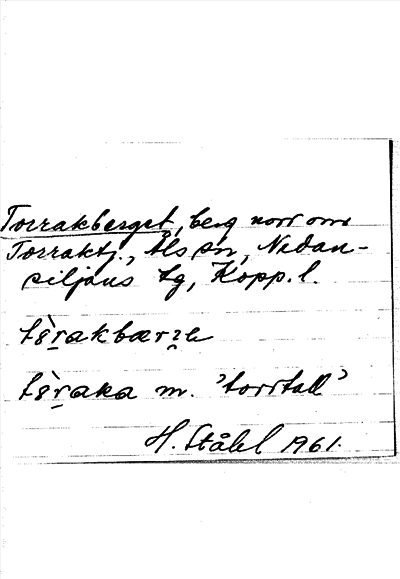 Torrakberget, berg norr om
Torraktj., Åls sn, Nedan-
siljans tg, Kopp. l.
tṣ̀rakbærʒe
tṣ̀raka m. 'torrtall'
H. Ståhl 1961.